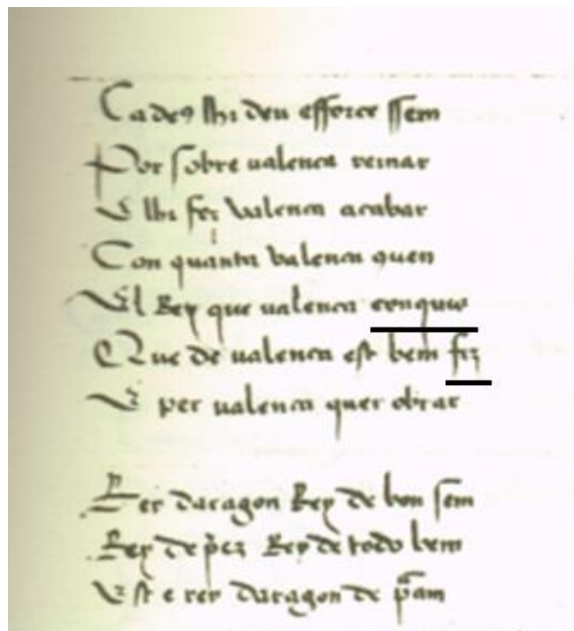 Ca deꝯ lhi deu efforce ssem
Por sobre ualenca reinar
E lhi fez Valenca acabar
Con quanta valenca quen
El Rey que ualenca conquis
Que de ualenca est bem fiz
E per ualenca quer obrar
Rey daragon Rey de bon sem
Rey de pʳez Rey de todo bem
Est e rey daragon de pᵃam